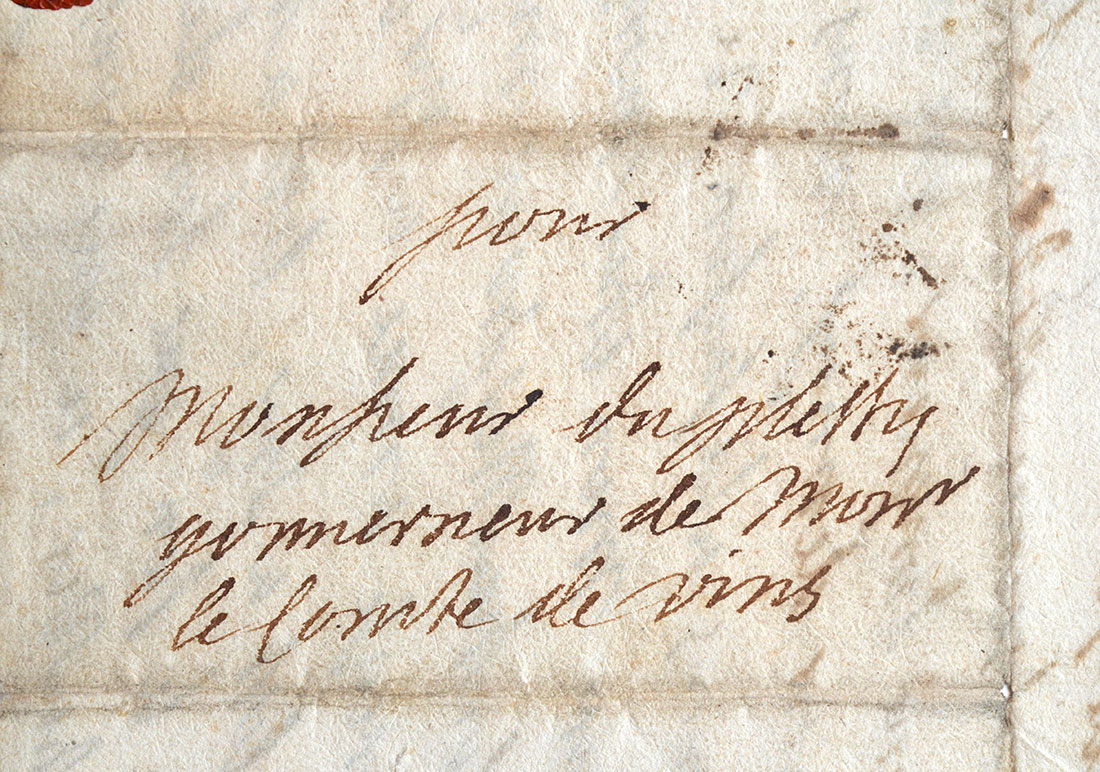 pour
Monsieur du plessy
gouuerneur de Monr
le Comte de vins